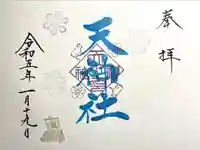 奉拝
天神社
令和五年一月十九日